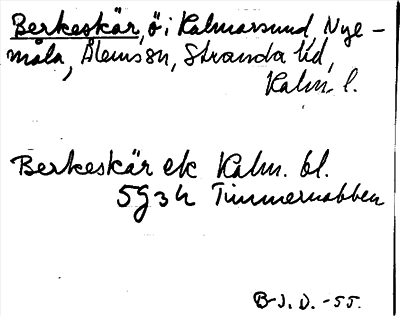 Berkeskär, ö i Kalmarsund, Nye-
måla, Ålems sn, Stranda hd,
Kalm. l.
Berkeskär ek Kalm. bl.
5G3h Timmernabben
B-J. D. -55.